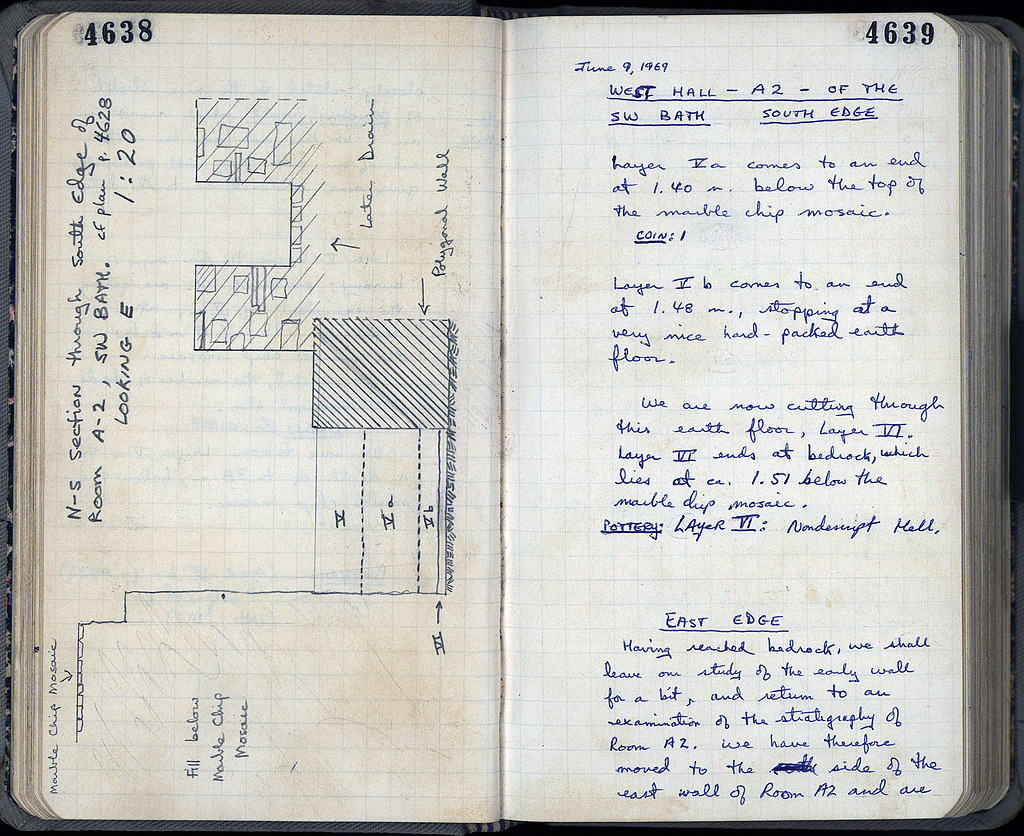 4638
N-S Section through South Edge of
Room A-2, SW BATH. cf plan p. 4628
LOOKING E 1:20
Later Drain
Polygonal Wall
V
Va
Vb
VI
Marble Chip Mosaic
Fill below
Marble Chip
Mosaic
4639
June 9, 1969
WEST HALL - A2 - OF THE
SW BATH SOUTH EDGE
Layer Va comes to an end
at 1.40 m. below the top of
the marble chip mosaic.
COIN: 1
Layer V b comes to an end
at 1.48 m., stopping at a
very nice hard-packed earth
floor.
We are now cutting through
this earth floor, Layer VI.
Layer VI ends at bedrock, which
lies at ca. 1.51 below the
marble chip mosaic.
POTTERY: LAyeR VI: Nondescript Hell.
EAST EDGE
Having reached bedrock, we shall
leave our study of the early wall
for a bit, and return to an
examination of the stratigraphy of
Room A2. We have therefore
moved to the side of the
east wall of Room A2 and are